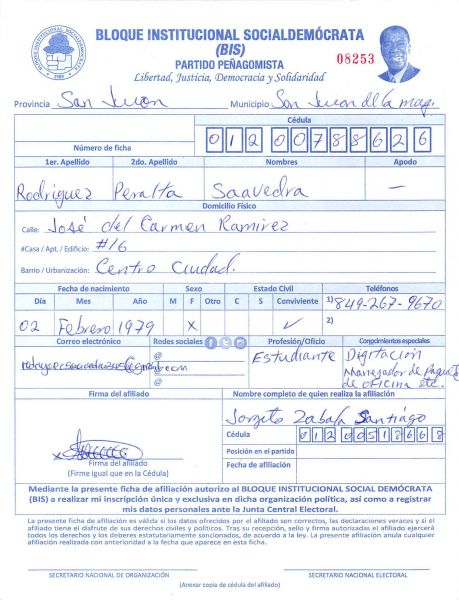 BLOQUE INSTITUCIONAL SOCIALDEMÓCRATA
(BIS)
PARTIDO PEÑAGOMISTA
Libertad, Justicia, Democracia y Solidaridad
08253
Provincia San Juan Municipio San Juan de la mag.
Cédula
Número de ficha 01200788626
1er. Apellido 2do. Apellido Nombres Apodo
Rodríguez Peralta Saavedra —
Domicilio Físico
Calle: José del Carmen Ramirez
#Casa / Apt. / Edificio: #16
Barrio / Urbanización: Centro Ciudad.
Fecha de nacimiento Sexo Estado Civil Teléfonos
Día Mes Año M F Otro C S Conviviente 1) 849-267-9670
02 Febrero 1979 X ✓ 2)
Correo electrónico Redes sociales Profesión/Oficio Conocimientos especiales
@ Estudiante Digitación
@ Manejador de Paquete
@ de oficina etc.
Firma del afiliado Nombre completo de quien realiza la afiliación
Jorgito Zabala Santiago
Cédula 01200518668
Posición en el partido
x
Firma del afiliado
(Firma igual que en la Cédula)
Fecha de afiliación
Mediante la presente ficha de afiliación autorizo al BLOQUE INSTITUCIONAL SOCIAL DEMÓCRATA
(BIS) a realizar mi inscripción única y exclusiva en dicha organización política, así como a registrar
mis datos personales ante la Junta Central Electoral.
La presente ficha de afiliación es válida si los datos ofrecidos por el afiliado son correctos, las declaraciones veraces y si el
afiliado tiene el disfrute de sus derechos civiles y políticos. Tras su recepción, sello y firma autorizadas el afiliado ejercerá
todos los derechos y los deberes estatutariamente sancionados, de acuerdo a la ley. La presente afiliación anula cualquier
afiliación realizada con anterioridad a la fecha que aparece en esta ficha.
SECRETARIO NACIONAL DE ORGANIZACIÓN SECRETARIO NACIONAL ELECTORAL
(Anexar copia de cédula del afiliado)